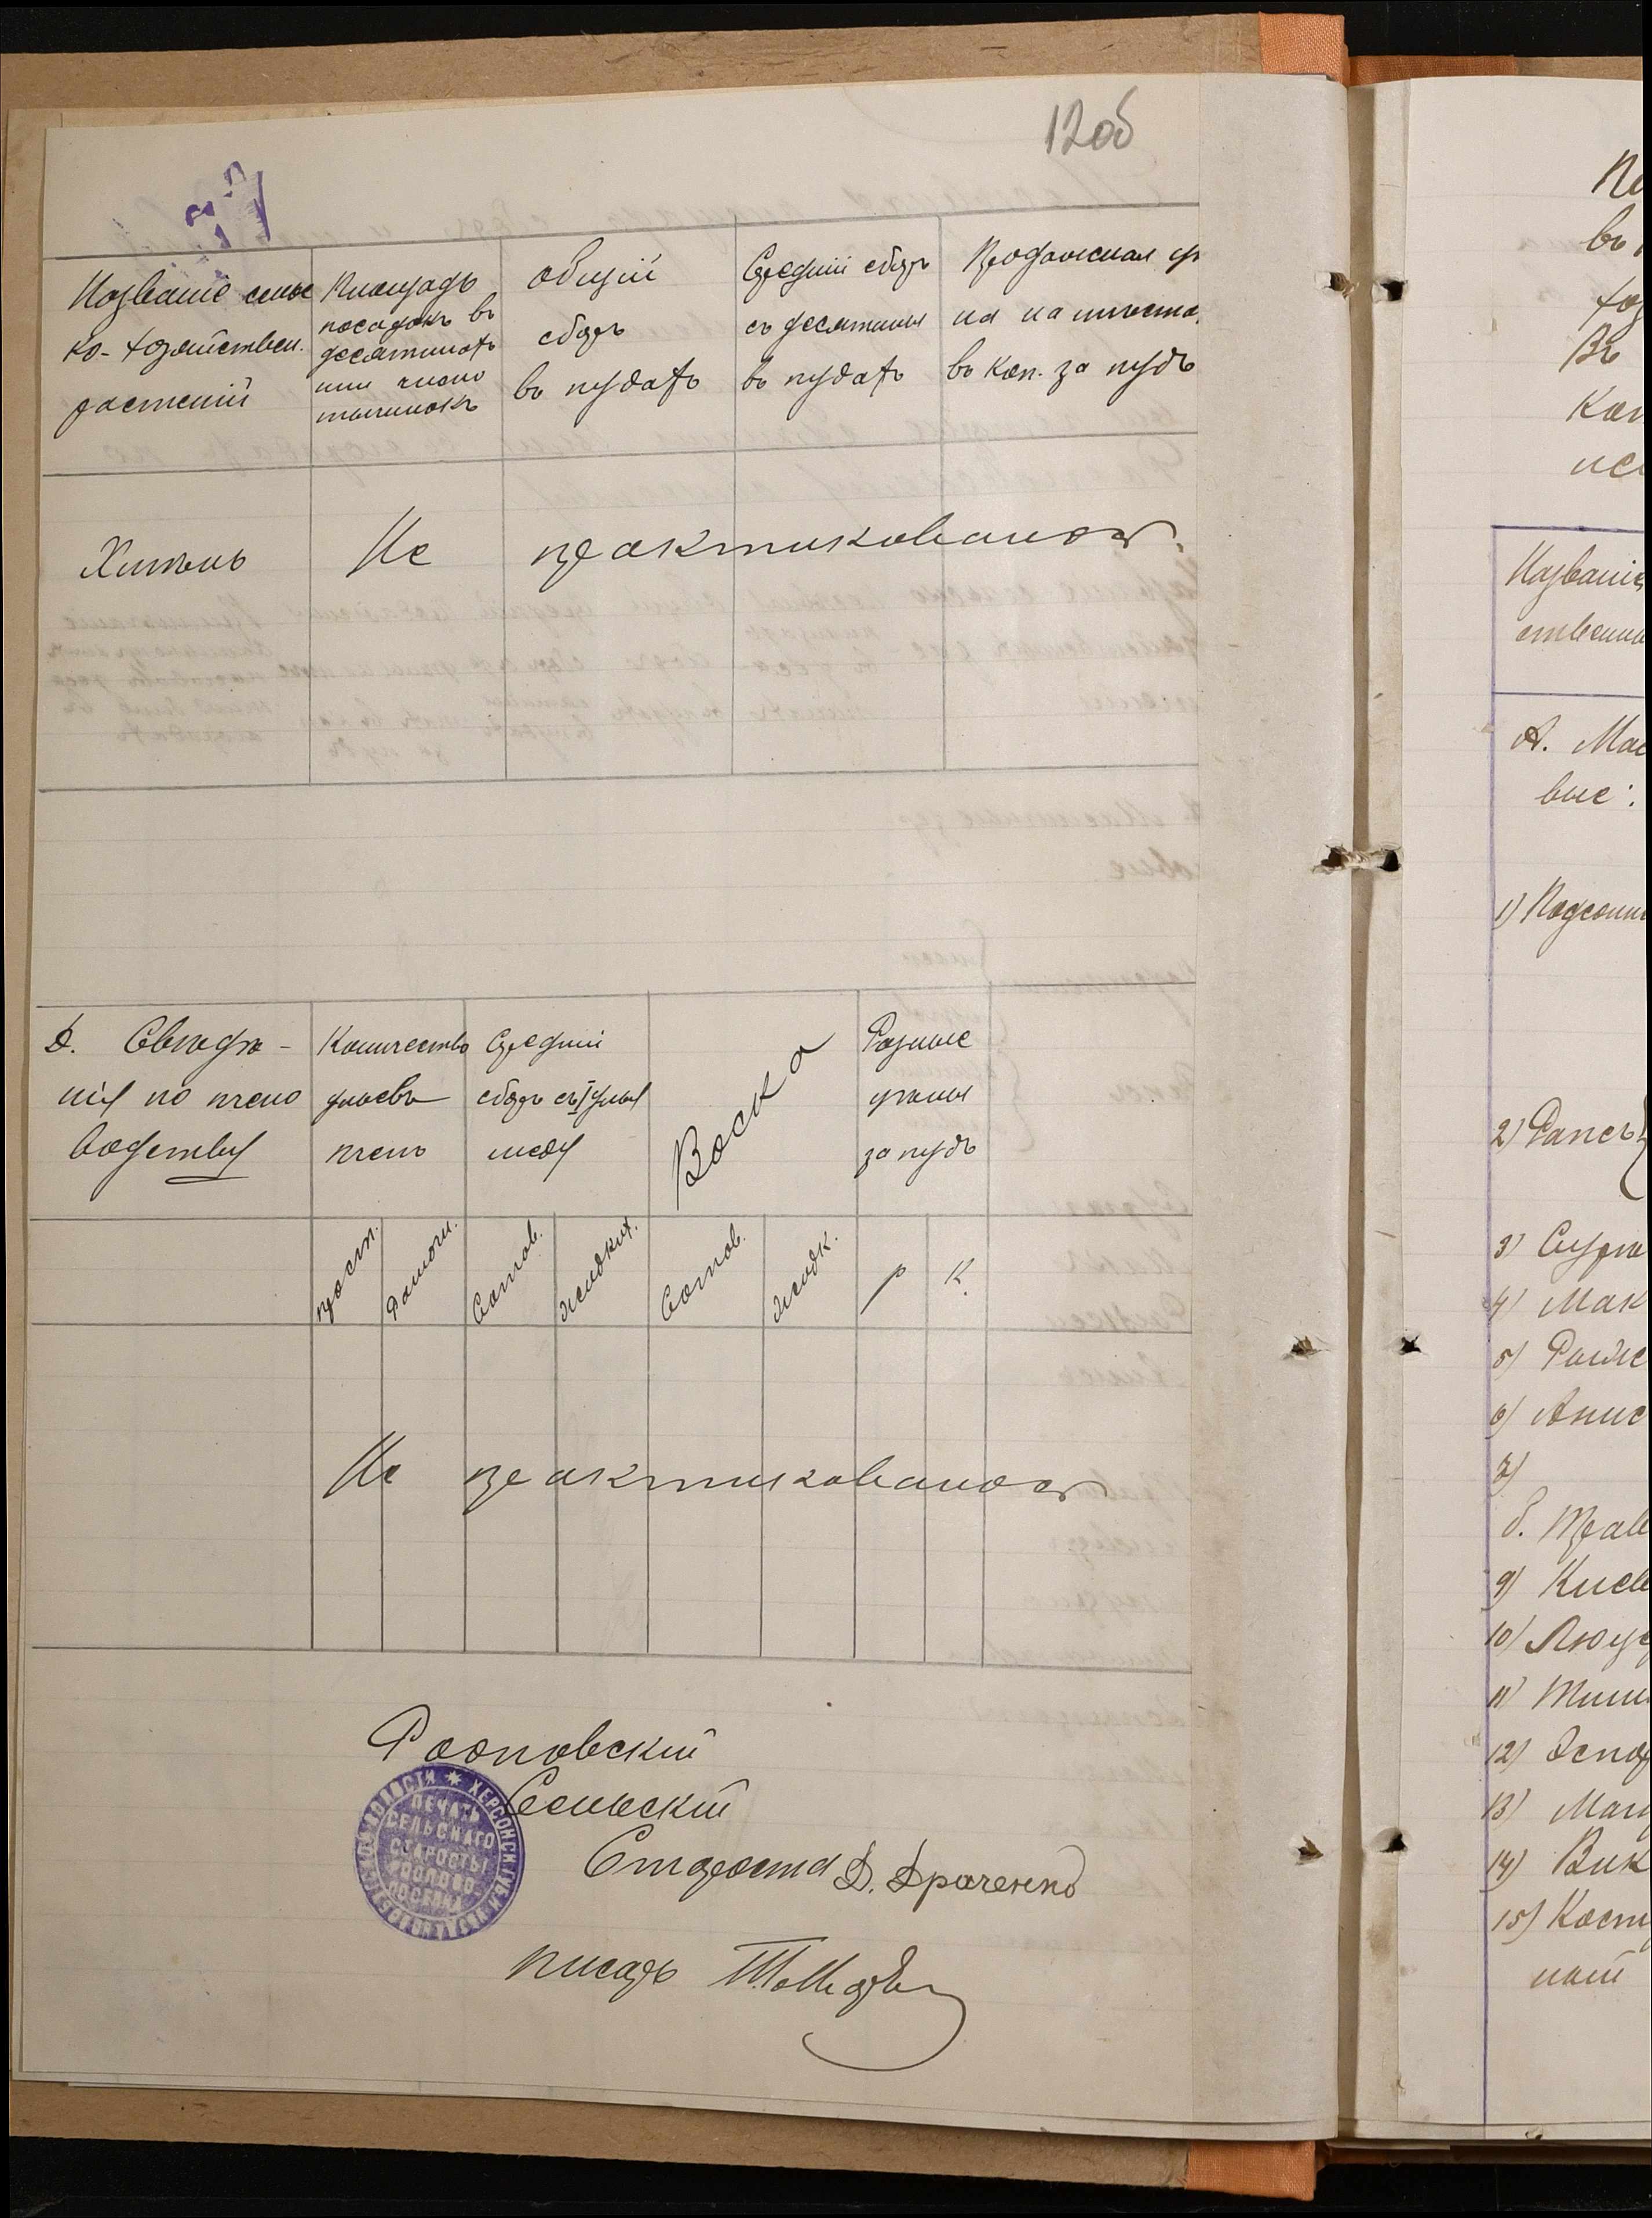 12 об
Названіе сельс
ко-хозяйствен.
растеній
Площадь
посадокъ въ
десятинахъ
или число
тычинокъ
общій
сборъ
въ пудахъ
Средній сборъ
съ десятины
въ пудахъ
Продажная цѣ
на на мѣстѣ
въ коп. за пудъ
Хмѣль Не практиковалось.
Д. Свѣдѣ-
нія по пчело
водству
Количество
ульевъ
пчелъ
Средній
сборъ съ 1 улья
меду
Воска
Разные
цѣны
за пудъ
прост. рамочн. сотов. жидких. сотов. жидк. р к.
Не практиковалось
Сельскій
Староста Д. Драченко
писарь
ПЕЧАТЬ
СЕЛЬСКАГО
СТАРОСТЫ
Названіе
ственны
А. Мас
вые:
1) Подсолн
2) Рапсъ
3) Сурѣ
4) Мак
5) Рыже
6) Анис
7)
б. Трав
9) Клев
10) Люце
11) Тим
12) Эспар
13)
14) Вик
15) Кост
ный